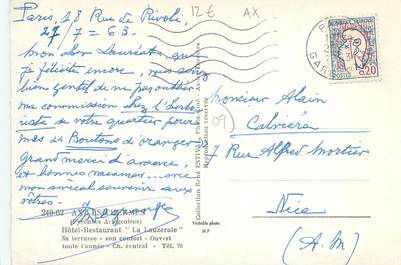 Paris, 18 Rue de Rivoli,
27/7 = 63.
Mon cher Lauréat, que
je félicite encore, vous serez
bien gentil de ne pas oublier
ma commission chez l'herbo
riste de votre quartier pour
mes Boutons d'oranger
Grand merci d'avance
et bonnes vacances... avec
mon amical souvenir aux
vôtres.
240-62 AX-LES-THERMES
(Pyrénées Ariégeoises)
Hôtel-Restaurant " La Lauzeraie "
Sa terrasse - son confort - Ouvert
toute l'année - Ch. central - Tél. 76
12 € AX
Reproduction réservée
Véritable photo
09
PARIS
GARE
REPUBLIQUE FRANCAISE
POSTES
0,20
Monsieur Alain
Cabriéra
7 Rue Alfred Mortier
Nice
(A.M)